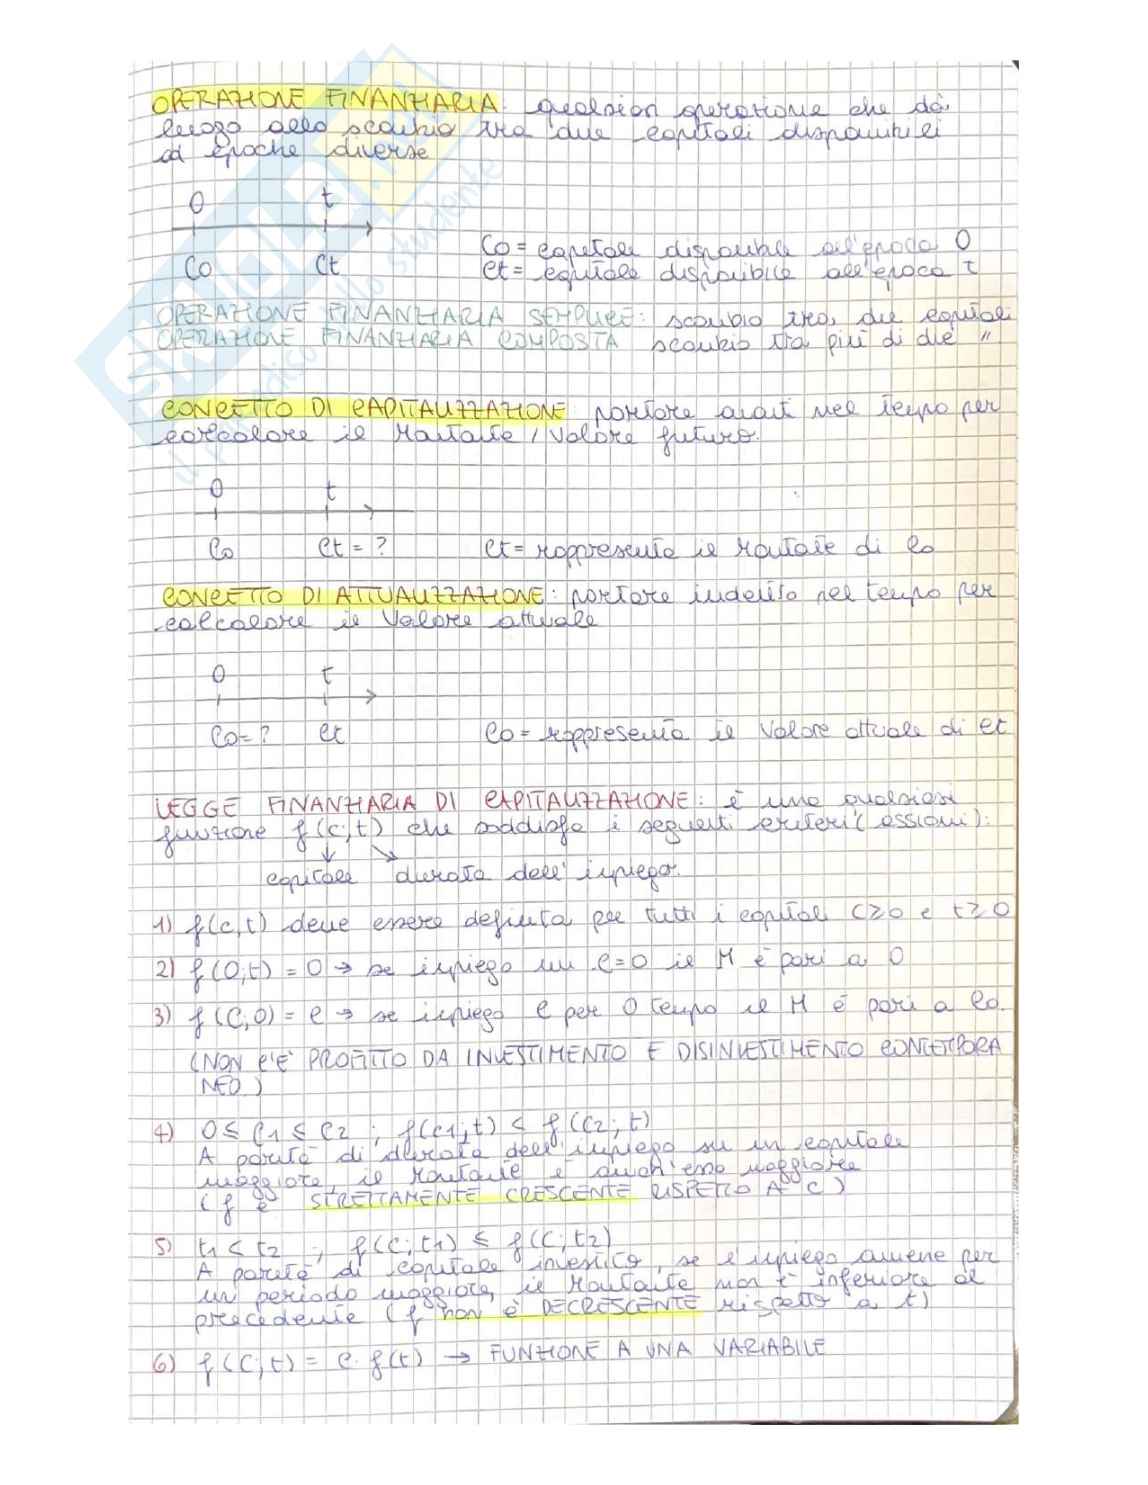 OPERAZIONE FINANZIARIA: qualsiasi operazione che dà
luogo allo scambio tra due capitali disponibili
ad epoche diverse
0 t
C0 Ct
C0 = capitale disponibile all'epoca 0
Ct = capitale disponibile all'epoca t
OPERAZIONE FINANZIARIA SEMPLICE: scambio tra due capitali
OPERAZIONE FINANZIARIA COMPOSTA scambio tra più di due "
CONCETTO DI CAPITALIZZAZIONE: portare avanti nel tempo per
calcolare il Montante / Valore futuro.
0 t
C0 Ct = ? Ct = rappresenta il Montante di C0
CONCETTO DI ATTUALIZZAZIONE: portare indietro nel tempo per
calcolare il Valore attuale
0 t
C0 = ? Ct C0 = rappresenta il Valore attuale di Ct
LEGGE FINANZIARIA DI CAPITALIZZAZIONE: è una qualsiasi
funzione f(c;t) che soddisfa i seguenti criteri (assiomi):
↓ ↘
capitale durata dell'impiego.
1) f(c,t) deve essere definita per tutti i capitali C≥0 e t≥0
2) f(0;t) = 0 → se impiego un C=0 il M è pari a 0
3) f(C;0) = C → se impiego C per 0 tempo il M è pari a C0.
(NON C'E' PROFITTO DA INVESTIMENTO E DISINVESTIMENTO CONTEMPORA
NEO)
4) 0 ≤ C1 ≤ C2 ; f(C1;t) < f(C2;t)
A parità di durata dell'impiego su un capitale
maggiore, il Montante è anch'esso maggiore
(f è STRETTAMENTE CRESCENTE RISPETTO A C)
5) t1 < t2 ; f(C;t1) ≤ f(C;t2)
A parità di capitale investito, se l'impiego avviene per
un periodo maggiore, il Montante non è inferiore al
precedente (f non è DECRESCENTE rispetto a t)
6) f(C;t) = C · f(t) → FUNZIONE A UNA VARIABILE
SKUOLA.net
il paradiso dello studente